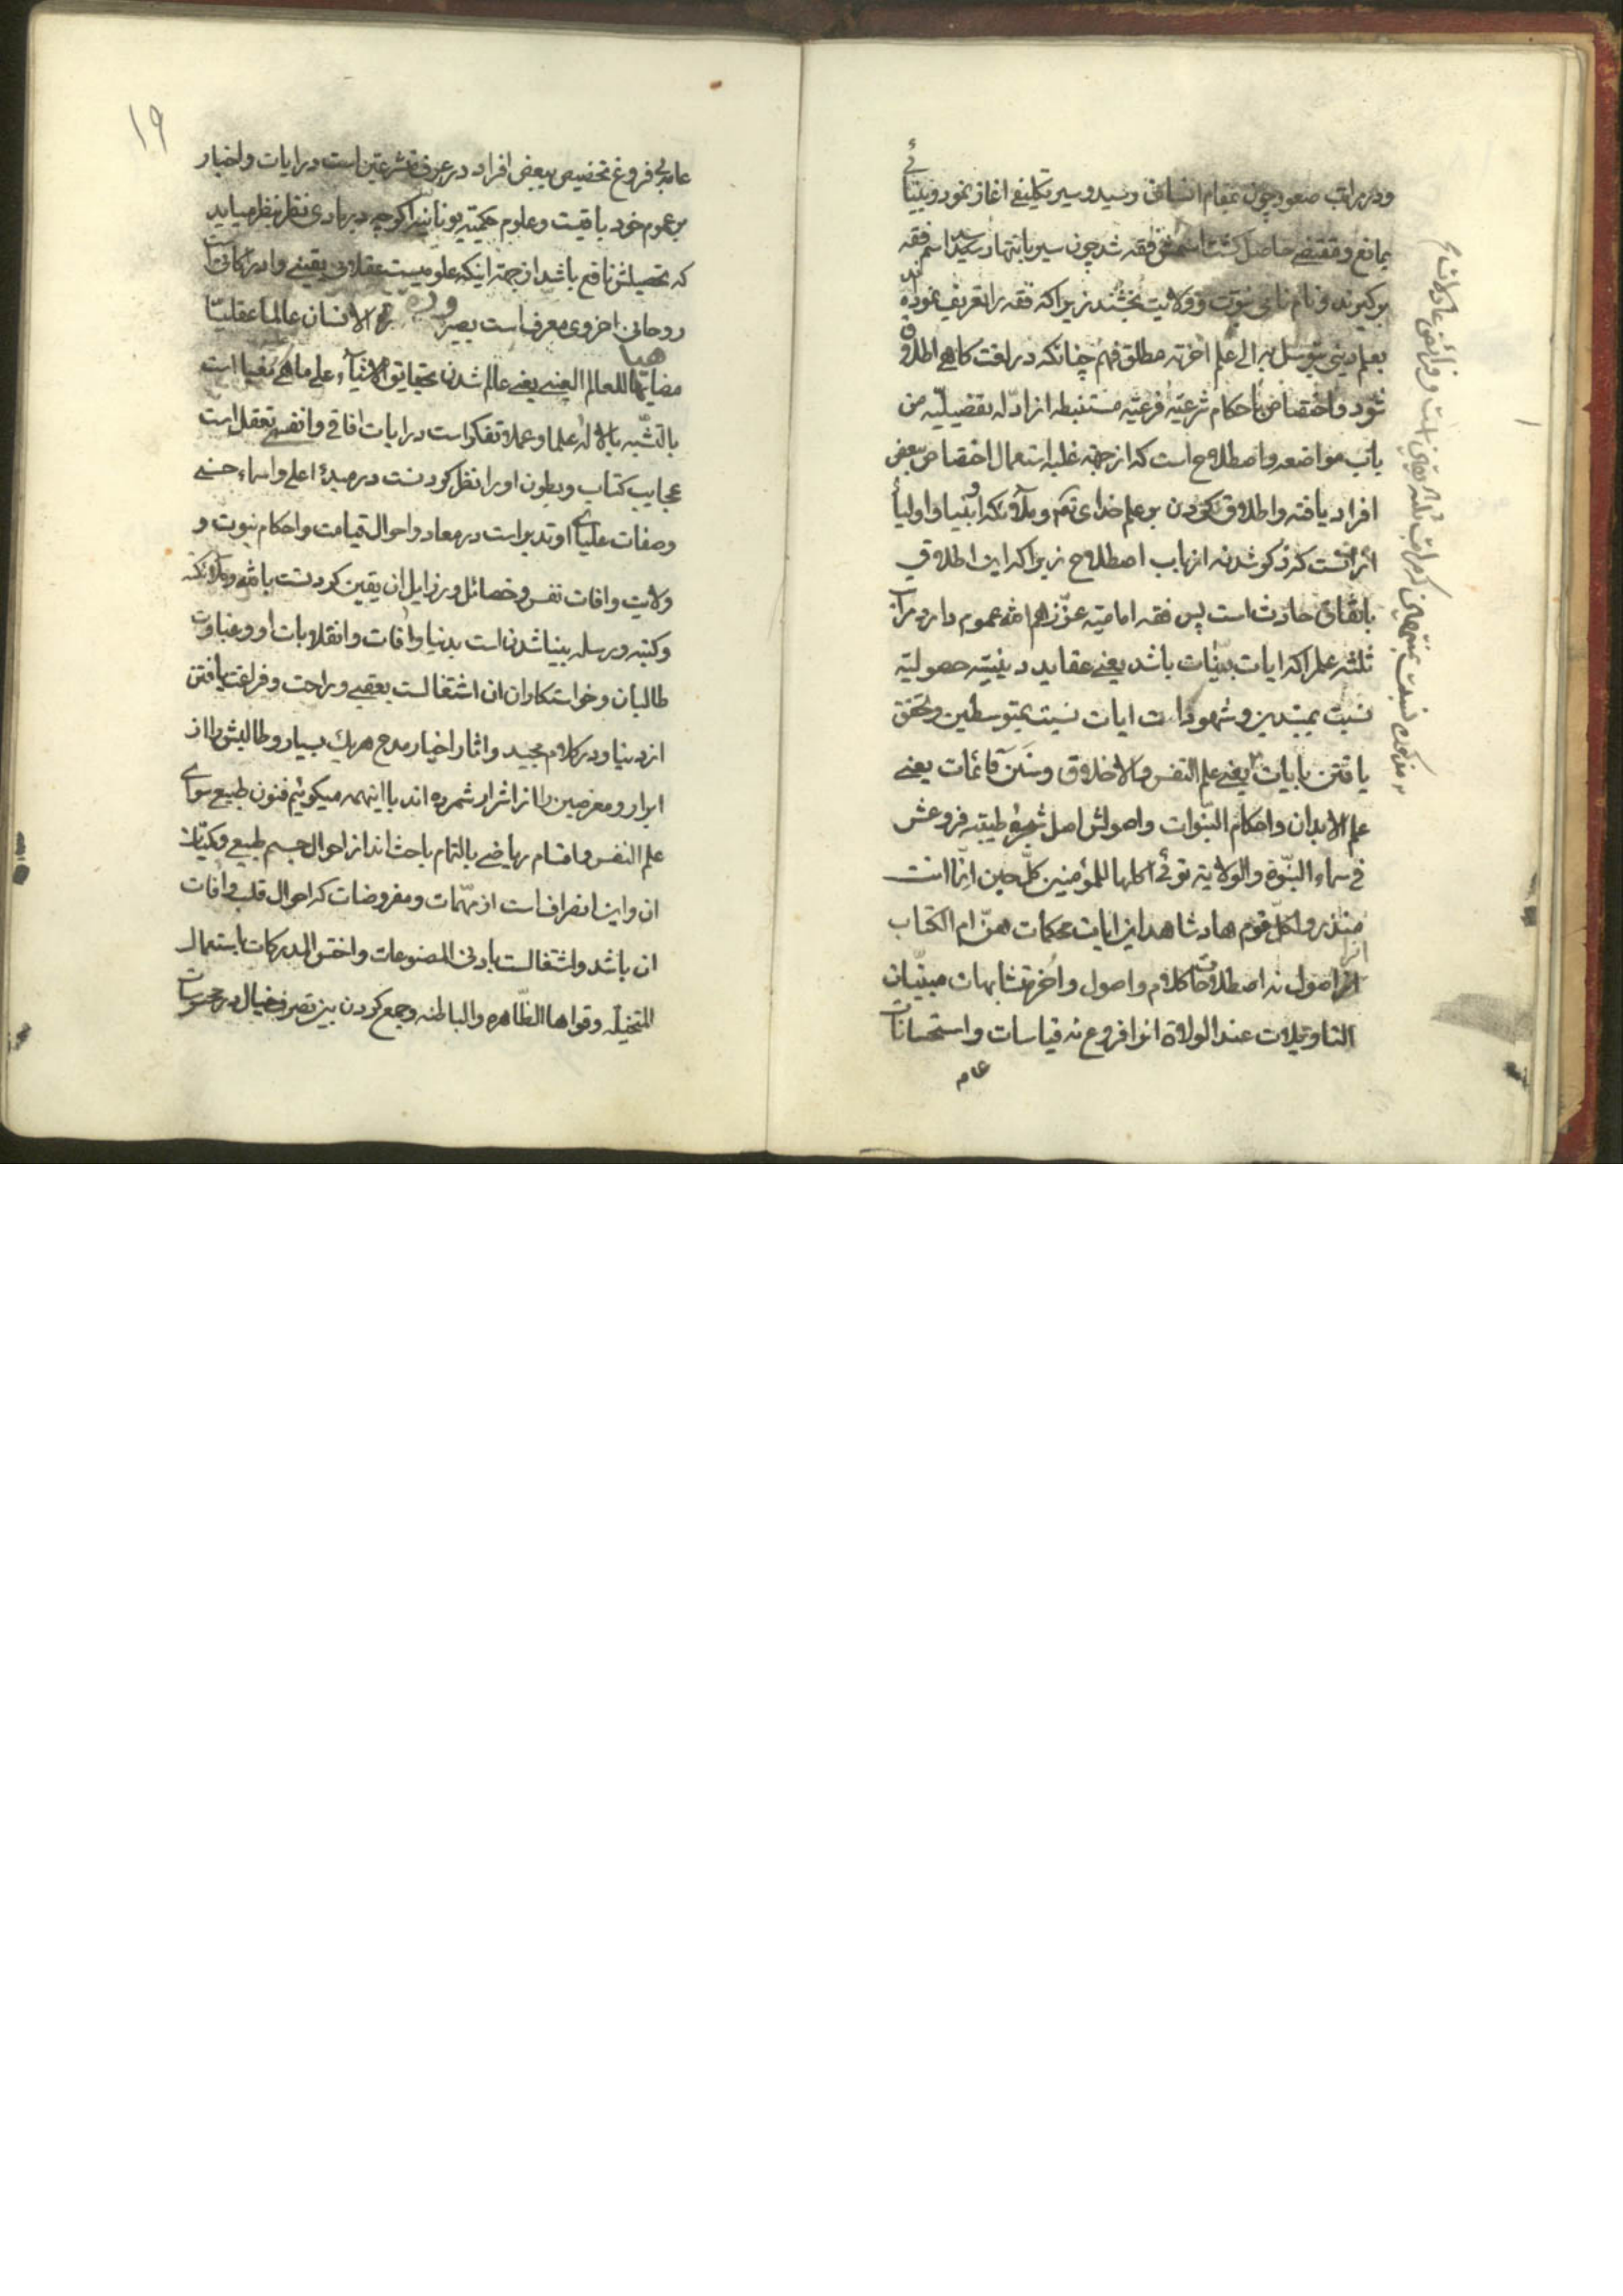 ودر مراتب صعود چون بمقام انسانی رسید و سیر تکلیفی اغاز نمود و بینائی
بمانع و مقتضی حاصل کشت اسمش فقه شد چون سیر بانتها رسید اسم فقه
بر کیرند و نام نامی نبوت و ولایت بخشند زیرا که فقه را تعریف نموده اند
بعلم دینی یتوسل به الی علم اخر نه مطلق فهم چنانکه در لغت کاهی اطلاق
شود و اختصاص باحکام شرعیه فرعیه مستنبطه از ادله تفضیلیه من
باب مواضعه و اصطلاح است که از جهة غلبه استعمال اختصاص ببعض
افراد یافته و اطلاق نکردن بر علم خدای تعم و ملائکه و انبیا و اولیا
از انست که ذکر شد نه از باب اصطلاح زیرا که این اطلاق
باتفاق حادث است پس فقه امامیه عزّزهم الله عموم دارد مراتب
ثلثه علم را که ایات بینات باشد یعنی عقاید دینیه حصولیه
نسبت بمبتدین و شهود ایات نسبت بمتوسطین و تحقق
یافتن بایات یعنی علم النفس و الاخلاق و سنن قائمات یعنی
علم الابدان و احکام النبوات و اصولش اصل شجره طیبه فروعش
فی سماء النبوة و الولایة تؤتی اکلها للمؤمنین کل حین انما انت
منذر و لکل قوم هاد شاهد این ایات محکمات هن ام الکتاب
انرا اصول نه اصطلاحات کلام و اصول و اخر متشابهات مبینان
التاویلات عند الولاة انرا فروع نه قیاسات و استحسانات
عام
۱۹
عام بی فروغ تخصیص ببعض افراد در عرف متشرعین است در ایات و اخبار
بر عموم خود باقیست و علوم حکمیه یونانیه اکر چه در بادی نظر بنظر میاید
که تحصیلش نافع باشد از جهة اینکه علومیست عقلانی یقینی و ادراکاتی است
روحانی اخروی معرف است بصیرورة الانسان عالما عقلیا
مضاهیا للعالم العینی یعنی عالم شدن بحقایق الاشیاء علی ماهی مغیا است
بالتشبه بالاله علما و عملا تفکر است در ایات افاقی و انفسی تعقل است
عجایب کتاب و بطون او را نظر کردنست در مبدء اعلی و اسماء حسنی
و صفات علیای او تدبر است در معاد و احوال قیامت و احکام نبوت و
ولایت و افات نفس و خصائل و رذایل ان یقین کردنست بالله و ملائکته
و کتبه و رسله بینا شدن است بدنیا و افات و انقلابات او و غباوت
طالبان و خواستکاران ان اشتغالست بعقبی و راحت و فراغت یافتن
از دنیا و در کلام مجید و اثار اخیار مدح هریک بسیار و طالبش را از
ابرار و معرضین را از اشرار شمرده اند با اینهمه میکوئیم فنون طبیعی سوای
علم النفس و اقسام ریاضی بالتمام باحث اند از احوال جسم طبیعی و کمیات
ان و این انصراف است از مهمات و مفروضات که احوال قلب و افات
ان باشد و اشتغالست بادنی المصنوعات و اخس المدرکات باستعمال
المتخیله و قواها الظاهره و الباطنه و جمع کردن بین تصرف خیال در محسوسات